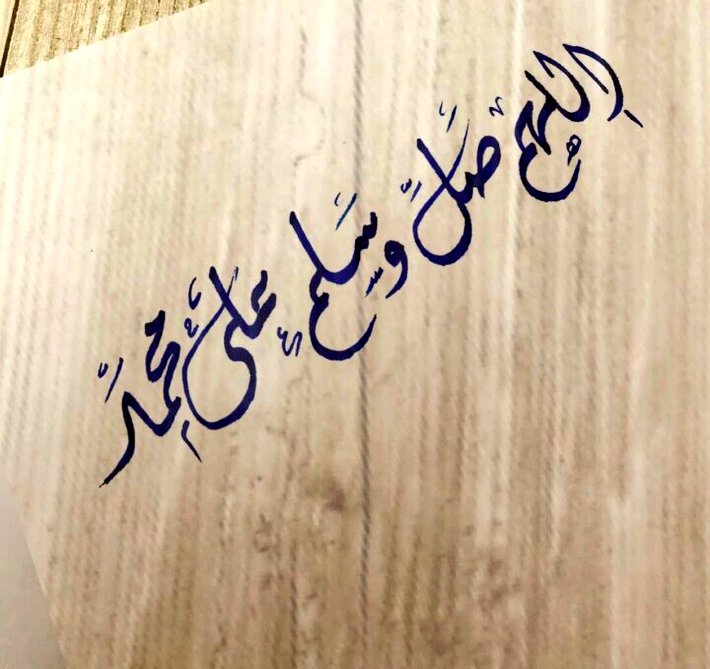 اللهم صَلِّ وَسَلِّم على محمَّد